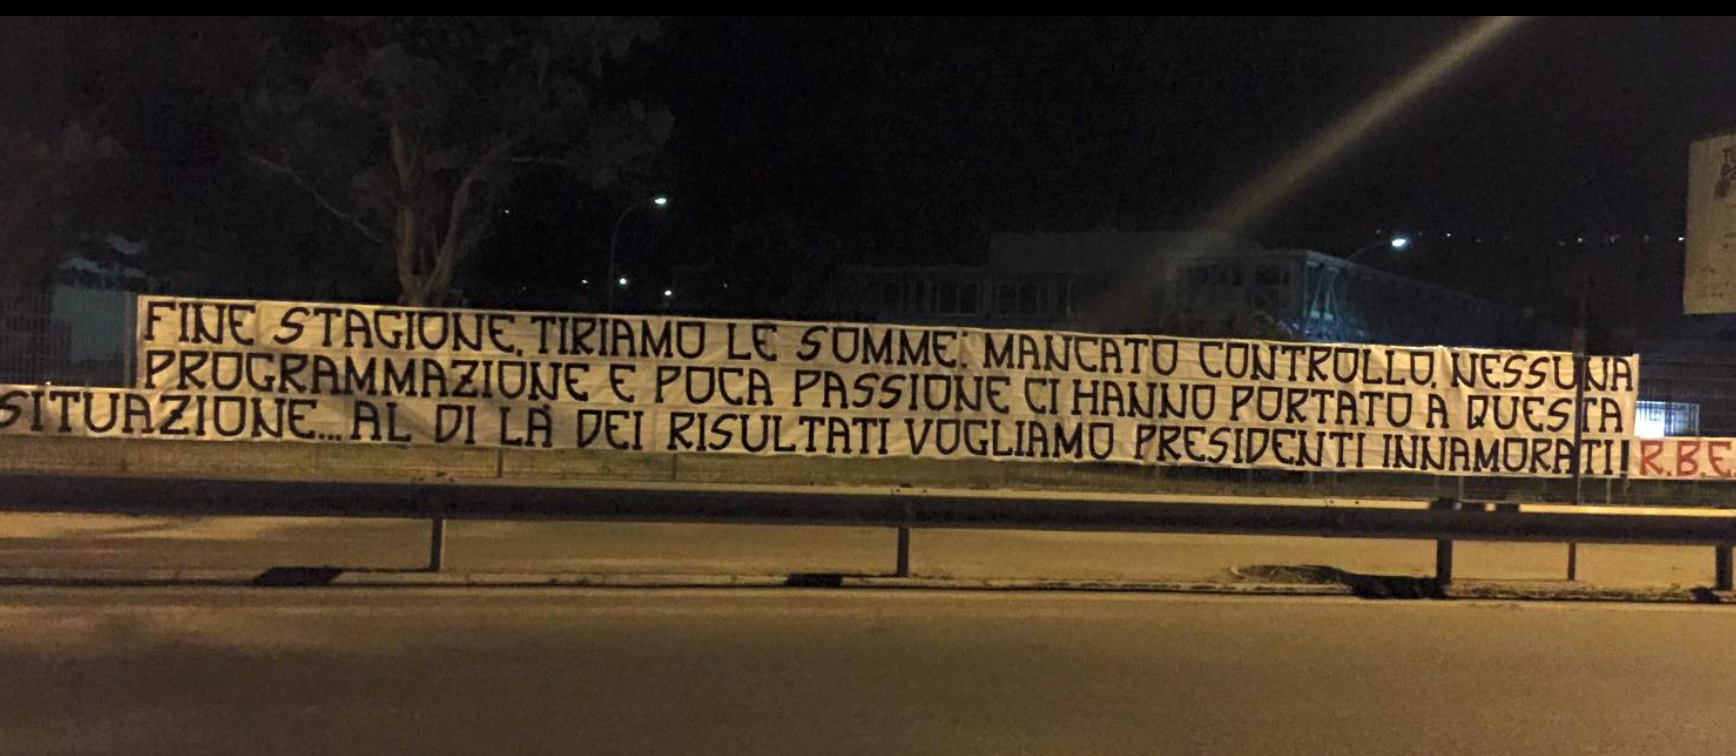 FINE STAGIONE, TIRIAMO LE SOMME: MANCATO CONTROLLO, NESSUNA
PROGRAMMAZIONE E POCA PASSIONE CI HANNO PORTATO A QUESTA
SITUAZIONE... AL DI LÀ DEI RISULTATI VOGLIAMO PRESIDENTI INNAMORATI! R.B.E.